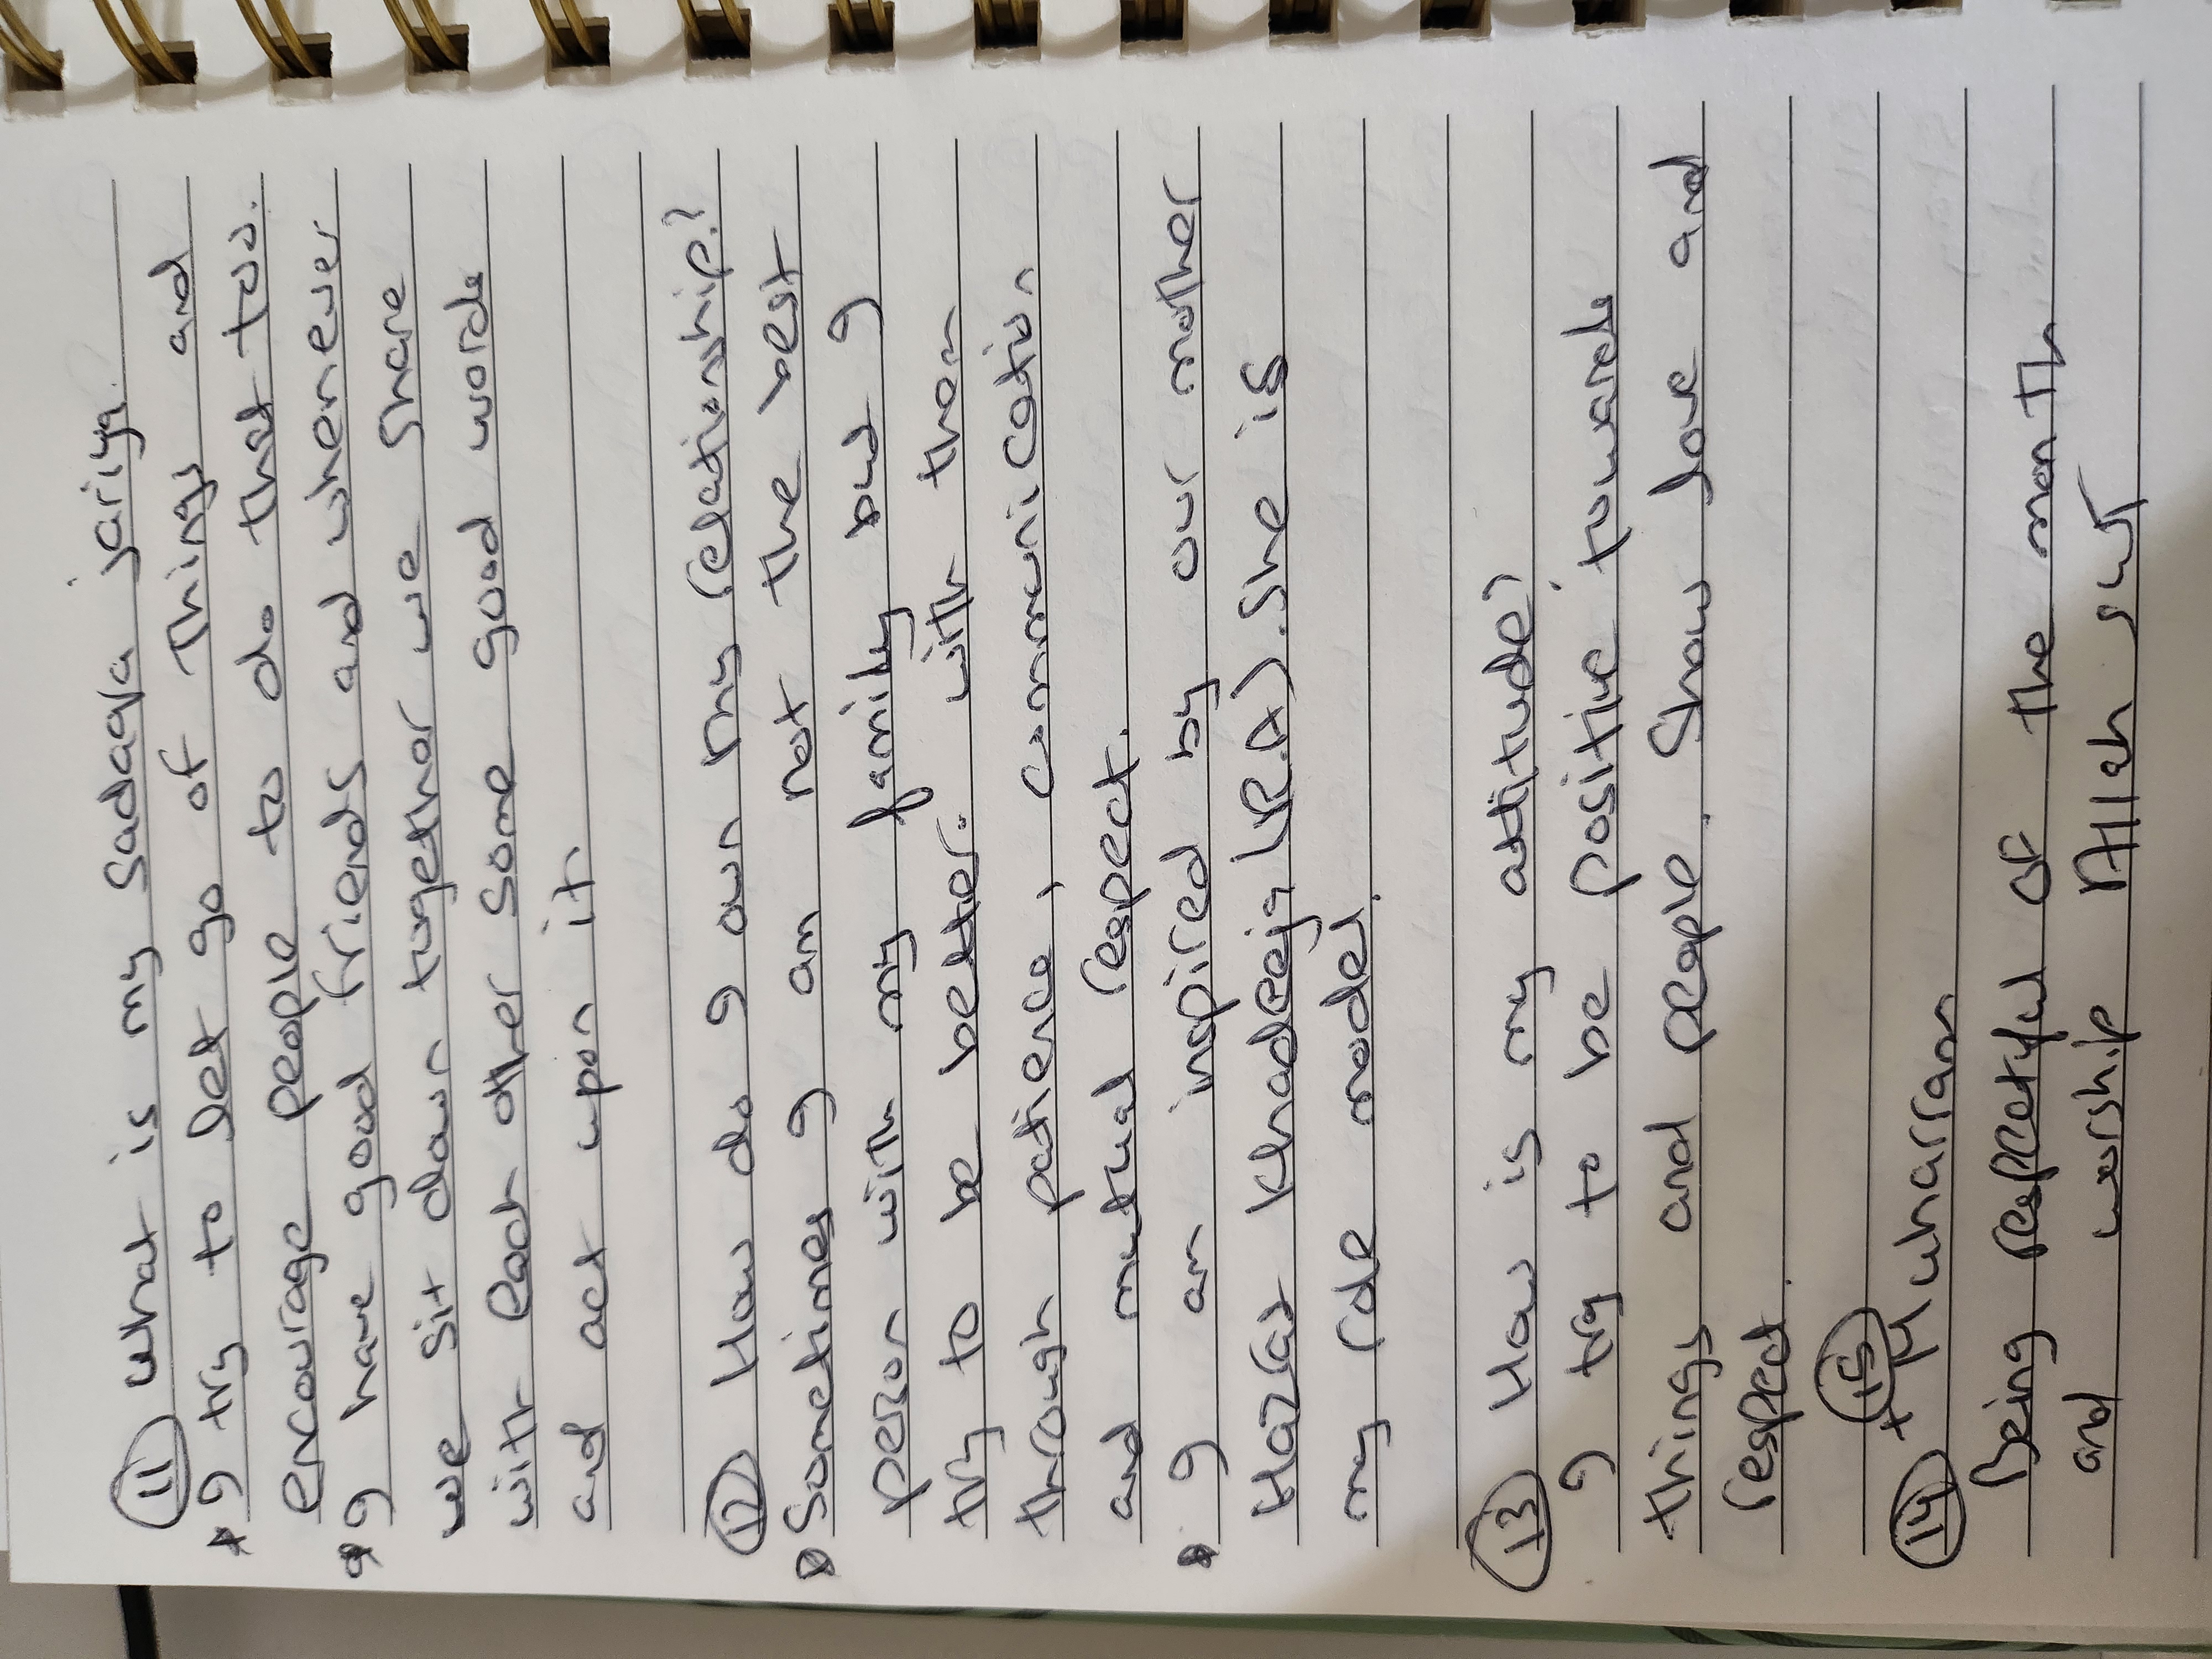 (11) What is my Sadaqa jariya.
* I try to let go of Things and
encourage people to do that too.
* I have good friends and whenever
we sit down together we share
with each other some good words
and act upon it.
(12) How do I own my relationship?
* Sometimes I am not the best
person with my family but I
try to be better. with them
through patience, communication,
and mutual respect.
* I am inspired by our mother
Hazrat Khadeeja (R.A). She is
my role model.
(13) How is my attitude?
I try to be positive towards
things and people. Show love and
respect.
(14) + (15) Muharram
Being respectful of the month
and worship Allah swt